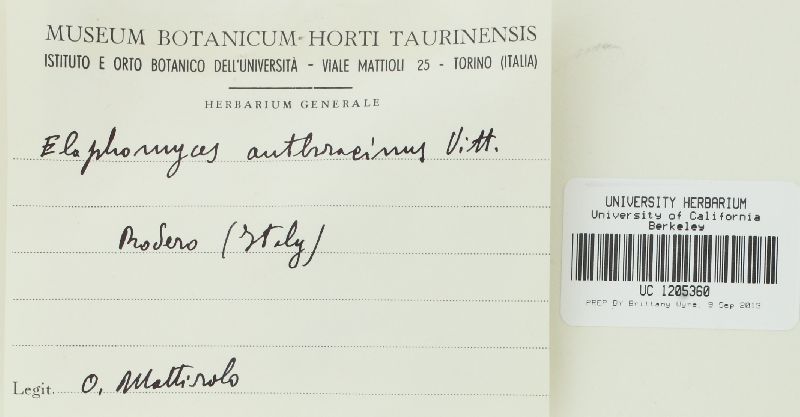 MUSEUM BOTANICUM HORTI TAURINENSIS
ISTITUTO E ORTO BOTANICO DELL'UNIVERSITÀ - VIALE MATTIOLI 25 - TORINO (ITALIA)
HERBARIUM GENERALE
Elaphomyces anthracinus Vitt.
Rodero (Italy)
Legit. O. Mattirolo
UNIVERSITY HERBARIUM
University of California
Berkeley
UC 1205360
PREP BY Brittany 9 Sep 2013